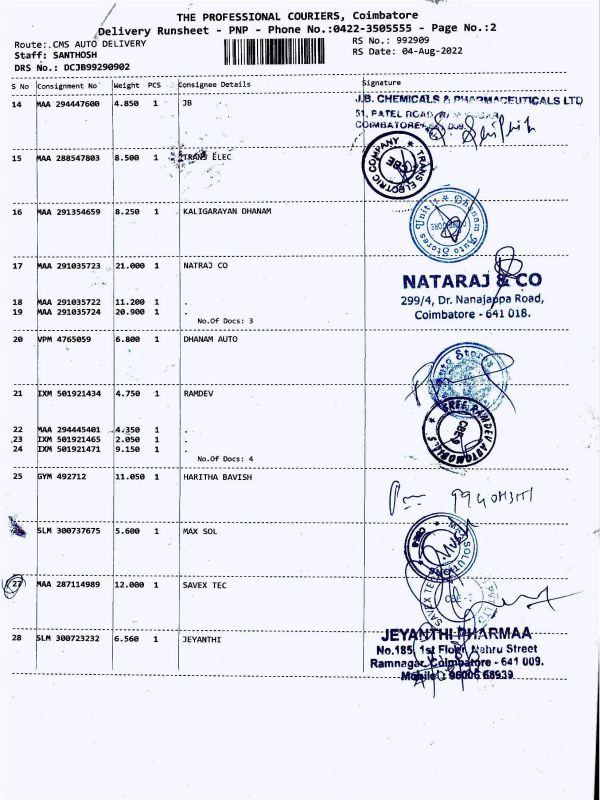 THE PROFESSIONAL COURIERS, Coimbatore
Delivery Runsheet - PNP - Phone No.:0422-3505555 - Page No.:2
Route:.CMS AUTO DELIVERY
RS No.: 992909
Staff: SANTHOSH
RS Date: 04-Aug-2022
DRS No.: DCJB99290902
S No Consignment No Weight PCS Consignee Details Signature
14 MAA 294447600 4.850 1 JB
J.B. CHEMICALS & PHARMACEUTICALS LTD
51, PATEL ROAD,
COIMBATORE
15 MAA 288547803 8.500 1 TRANS ELEC
TRANS ELECTRIC COMPANY
CBE
16 MAA 291354659 8.250 1 KALIGARAYAN DHANAM
Dhanam Auto Stores Unit
17 MAA 291035723 21.000 1 NATRAJ CO
NATARAJ & CO
299/4, Dr. Nanajappa Road,
Coimbatore - 641 018.
18 MAA 291035722 11.200 1 .
19 MAA 291035724 20.900 1 .
No.Of Docs: 3
20 VPM 4765059 6.800 1 DHANAM AUTO
Auto Stores
21 IXM 501921434 4.750 1 RAMDEV
SREE RAMDEV AUTOMOBILES
22 MAA 294445401 4.350 1 .
23 IXM 501921465 2.050 1 .
24 IXM 501921471 9.150 1 .
No.Of Docs: 4
25 GYM 492712 11.050 1 HARITHA BAVISH
SLM 300737675 5.600 1 MAX SOL
SOLUTIONS
27 MAA 287114989 12.000 1 SAVEX TEC
SAVEX TEC
CBE-2
28 SLM 300723232 6.560 1 JEYANTHI
JEYANTHI PHARMAA
No.185, 1st Floor, Nehru Street
Ramnagar, Coimbatore - 641 009.
Mobile : 96006 68939